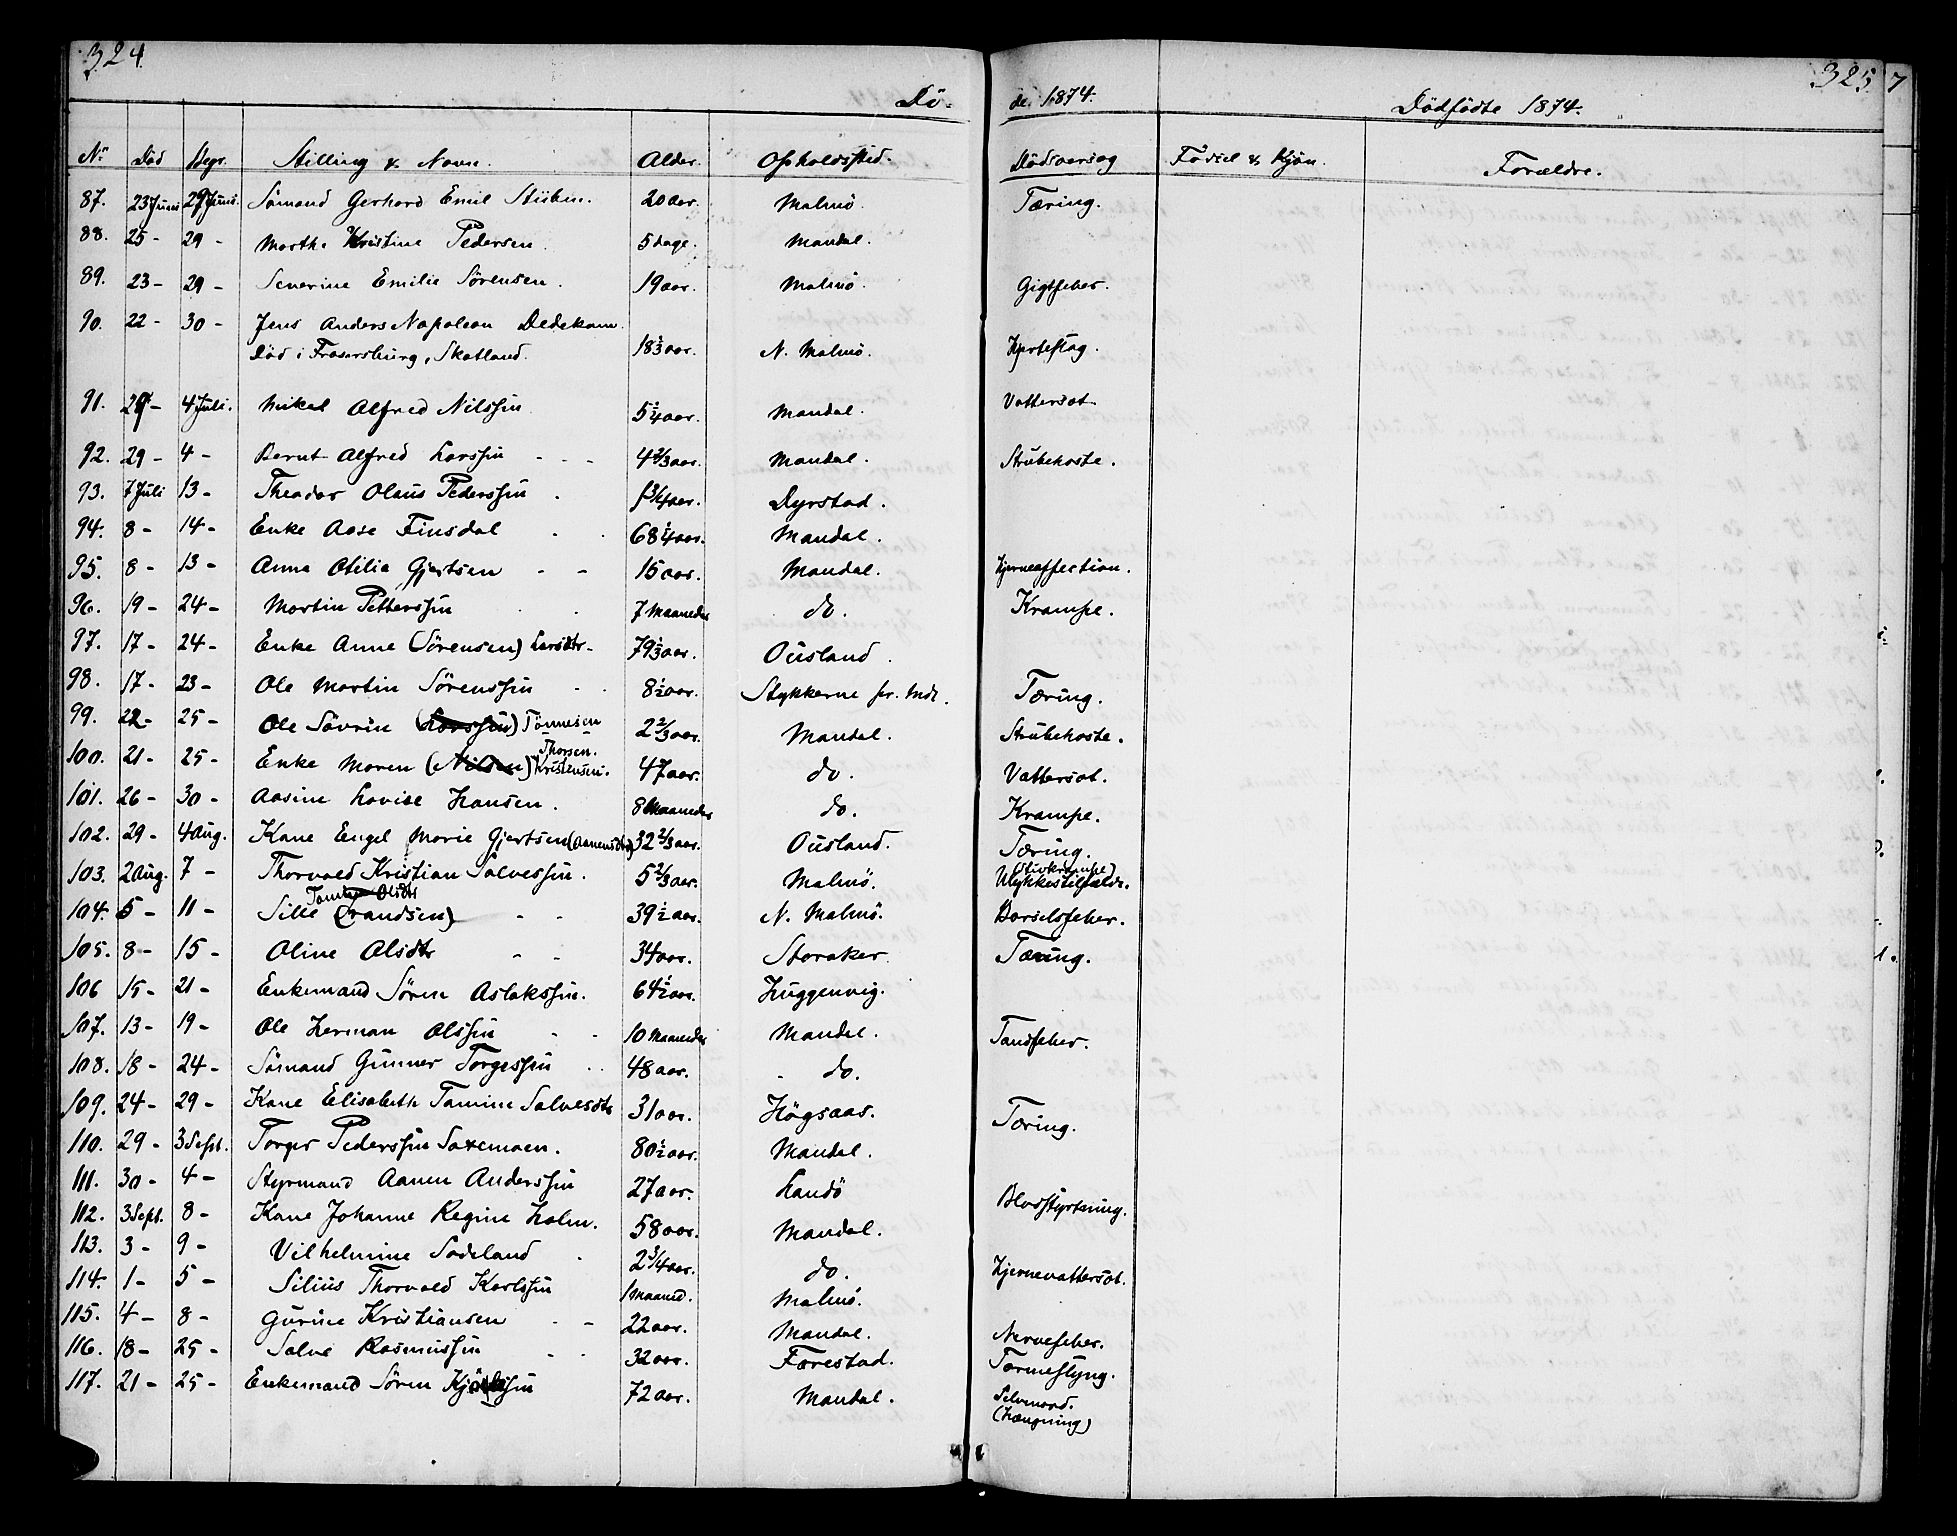 324.
325
7
Dö-
de 1874.
Dödfödte 1874.
No Död Begr. Stilling & Navn. Alder. Opholdssted. Dödsaarsag Födsel & Kjön. Forældre.
87. 23 Juni 29 Juni. Sömand Gerhard Emil Stüben. 20 aar. Malmö. Tæring.
88. 25 - 29 - Marthe Kristine Pedersen. 5 dage. Mandal.
89. 23 - 29 - Severine Emilie Sörensen. 19 aar. Malmö. Gigtfeber.
90. 22 - 30 - Jens Anders Napoleon Dedekam.
Död i Frasersburg, Skotland. 18 1/3 aar. N. Malmö. Hjerteslag.
91. 29 - 4 Juli. Mikal Alfred Nilssen 5 1/4 aar. Mandal. Vattersot.
92. 29 - 4 - Bernt Alfred Larssen - - - 4 2/3 aar. Mandal. Strubehoste.
93. 7 Juli 13 - Theodor Olaus Pederssen. 1 3/4 aar. Dyrstad.
94. 8 - 14 - Enke Aase Finsdal 68 1/4 aar. Mandal.
95. 8 - 13 - Anna Otilia Gjertsen - - 15 aar. Mandal. Hjerneaffection.
96. 19 - 24 - Martin Petterssen 7 Maaneder do. Krampe.
97. 17 - 24 - Enke Anne (Sörensen) Larsdtr - 79 1/3 aar. Ousland.
98. 17 - 23 - Ole Martin Sörenssen 8 1/2 aar. Stykkerne pr. Mdl. Tæring.
99. 22 - 25 - Ole Sövrin (Larssen) Tönnesen 2 2/3 aar. Mandal. Strubehoste.
100. 21 - 25 - Enke Maren (Nilsen) Thorsen. Kristensen. 47 aar. do. Vattersot.
101. 26 - 30 - Aasine Lovise Hansen. 8 Maaneder do. Krampe.
102. 29 - 4 Aug. Kone Engel Marie Gjertsen (Aanensdtr) 32 2/3 aar. Ousland. Tæring.
103. 2 Aug. 7 - Thorvald Kristian Salvessen. 5 2/3 aar. Malmö. (Stivkrampe) Ulykkestilfælde.
104. 5 - 11 - Sille (Frandsen) Olsdtr - - 39 1/2 aar. N. Malmö. Barselsfeber.
105. 8 - 15 - Oline Olsdtr - - 34 aar. Storaker. Tæring.
106 15 - 21 - Enkemand Sören Aslakssen. 64 1/2 aar. Huggenvig.
107. 13 - 19 - Ole Herman Olssen 10 Maaneder Mandal. Tandfeber.
108. 18 - 24 - Sömand Gunner Torgessen 48 aar. do.
109. 24 - 29 - Kone Elisabeth Tamine Salvesdtr 31 aar. Högsaas. Tæring.
110. 29 - 3 Sept. Torger Pederssen Saxemoen. 80 1/2 aar. Mandal.
111. 30 - 4 - Styrmand Aanen Anderssen 27 aar. Landö Blodstyrtning.
112. 3 Sept. 8 - Kone Johanne Regine Holm. 58 aar. Mandal.
113. 3 - 9 - Vilhelmine Sodeland. 2 3/4 aar. do. Hjernevattersot.
114. 1 - 5 - Silius Thorvald Karlssen 1 Maaned. Malmö.
115. 4 - 8 - Gurine Kristiansen - 22 aar. Mandal. Nervefeber.
116. 18 - 25 - Salve Rasmussen 32 aar. Færestad. Tarmeslyng.
117. 21 - 25 - Enkemand Sören 72 aar. Mandal. Selvmord.
(Hængning)